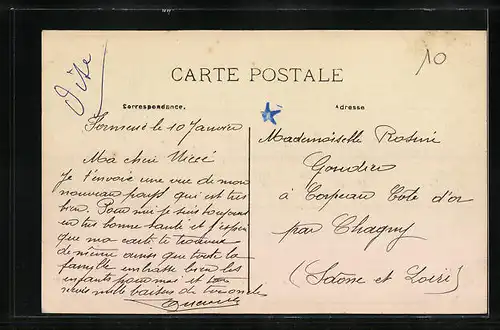 Vite
10
CARTE POSTALE
Correspondance.
Adresse
le 10 Janvier
Ma chère Nièce
Je t'envoie une vue de mon
nouveau pays qui est très
bien. Pour moi je suis toujours
en très bonne santé et j'espère
que ma carte te trouvera
de même ainsi que toute la
famille embrasse bien les
enfants pour moi et
reçois mille baisers de
Mademoiselle Rosine
Gondier
à Corpeau Cote d'or
par Chagny
(Saône et Loire)